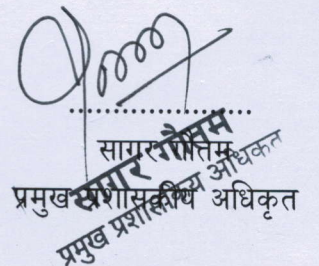 ....................................
सागर गौतम
प्रमुख प्रशासकीय अधिकृत
सागर गौतम
प्रमुख प्रशासकीय अधिकृत